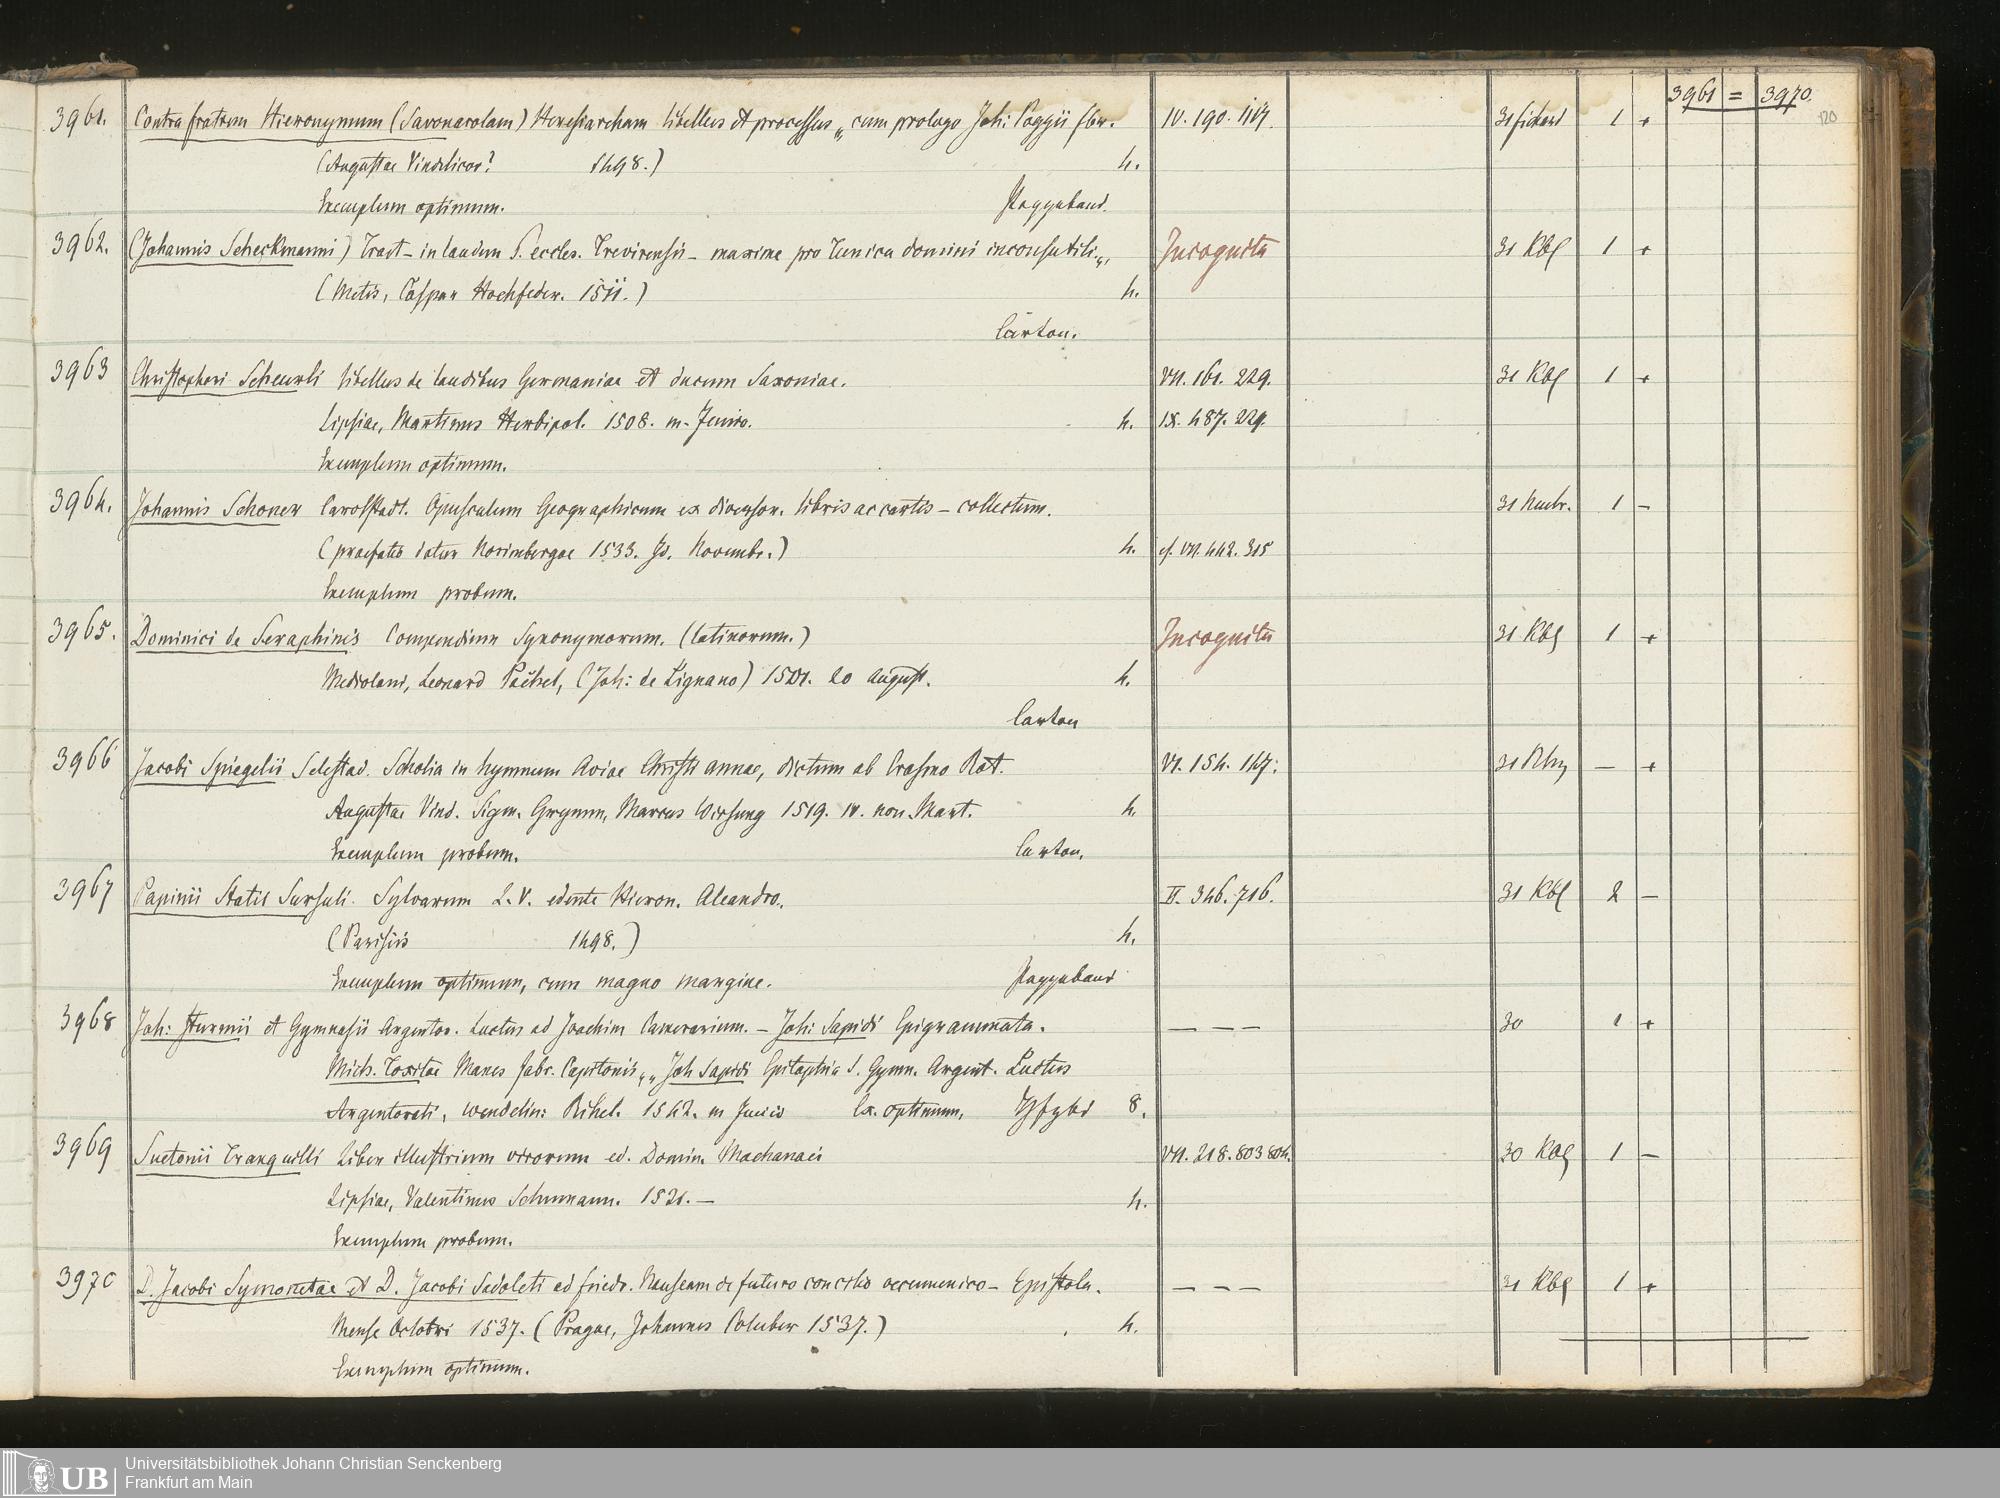 3961 = 3970.
120
3961. Contra fratrem Hieronymum (Savonarolam) Heresiarcham libellus et processus „ cum prologo Joh: Poggii flor. IV. 190. 31 fichard 1 +
(Augustae Vindelicor? 1498.) 4.
Exemplum optimum. Pappband.
3962. (Johannis Scheckmanni) Tract– in laudem S. eccles. Trevirensis – maxime pro Tunica domini inconsutili.„, Incognita 31 Kbg 1 +
(Metis, Caspar Hochfeder. 1511.) 4.
Carton.
3963 Christopheri Scheurli libellus de laudibus Germaniae et ducum Saxoniae. VII. 161. 229. 31 Kbg 1 +
Lipsiae, Martinus Herbipol. 1508. m. Junio. 4. IX. 487. 229.
Exemplum optimum.
3964. Johannis Schoner Carolstadt. Opusculum Geographicum ex diversor. libris ac cartis – collectum. 31 1 –
(praefatio datur Norimbergae 1533. Id. Novembr.) 4. cf. VII. 442. 315
Exemplum probum.
3965. Dominici de Seraphinis Compendium Synonymorum. (latinorum.) Incognita 31 Kbg 1 +
Mediolani, Leonard Pachel, (Joh: de Lignano) 1501. 20 August. 4.
Carton
3966 Jacobi Spiegelii Selestad. Scholia in hymnum Aviae Christi annae, dictum ab Erasmo Rot. VI. 154. 147. 31 – +
Augustae Vind. Sigm. Grymm, Marcus Wirsung 1519. IV. non. Mart. 4.
Exemplum probum. Carton.
3967 Papinii Statii Sursuli. Sylvarum L. V. edente Hieron. Aleandro. II. 346. 716. 31 Kbg 2 –
(Parisiis 1498.) 4.
Exemplum optimum, cum magno margine. Pappband
3968 Joh: Sturmii et Gymnasii Argentor. Luctus ad Joachim Camerarium. – Joh: Sapidi Epigrammata. – – – 30 1 +
Mich. Toxitae Manes fabr. Capitonis „ „ Joh Sapidi Epitaphia S. Gymn. Argent. Luctus
Argentorati, Wendelin: Rihel. 1542. m Junio Ex. optimum, 8.
3969 Suetonii Tranquilli Liber illustrium virorum ed. Domin. Machanaei VII. 218. 803 804. 30 Kbg 1 –
Lipsiae, Valentinus Schumann. 1521. – 4.
Exemplum probum.
3970 D. Jacobi Symonetae et D. Jacobi Sadoleti ad Friedr. Nauseam de futuro concilio oecumenico – Epistola. – – – 31 Kbg 1 +
Mense Octobri 1537. (Pragae, Johannes Coluber 1537.) 4.
Exemplum optimum.
UB
Universitätsbibliothek Johann Christian Senckenberg
Frankfurt am Main